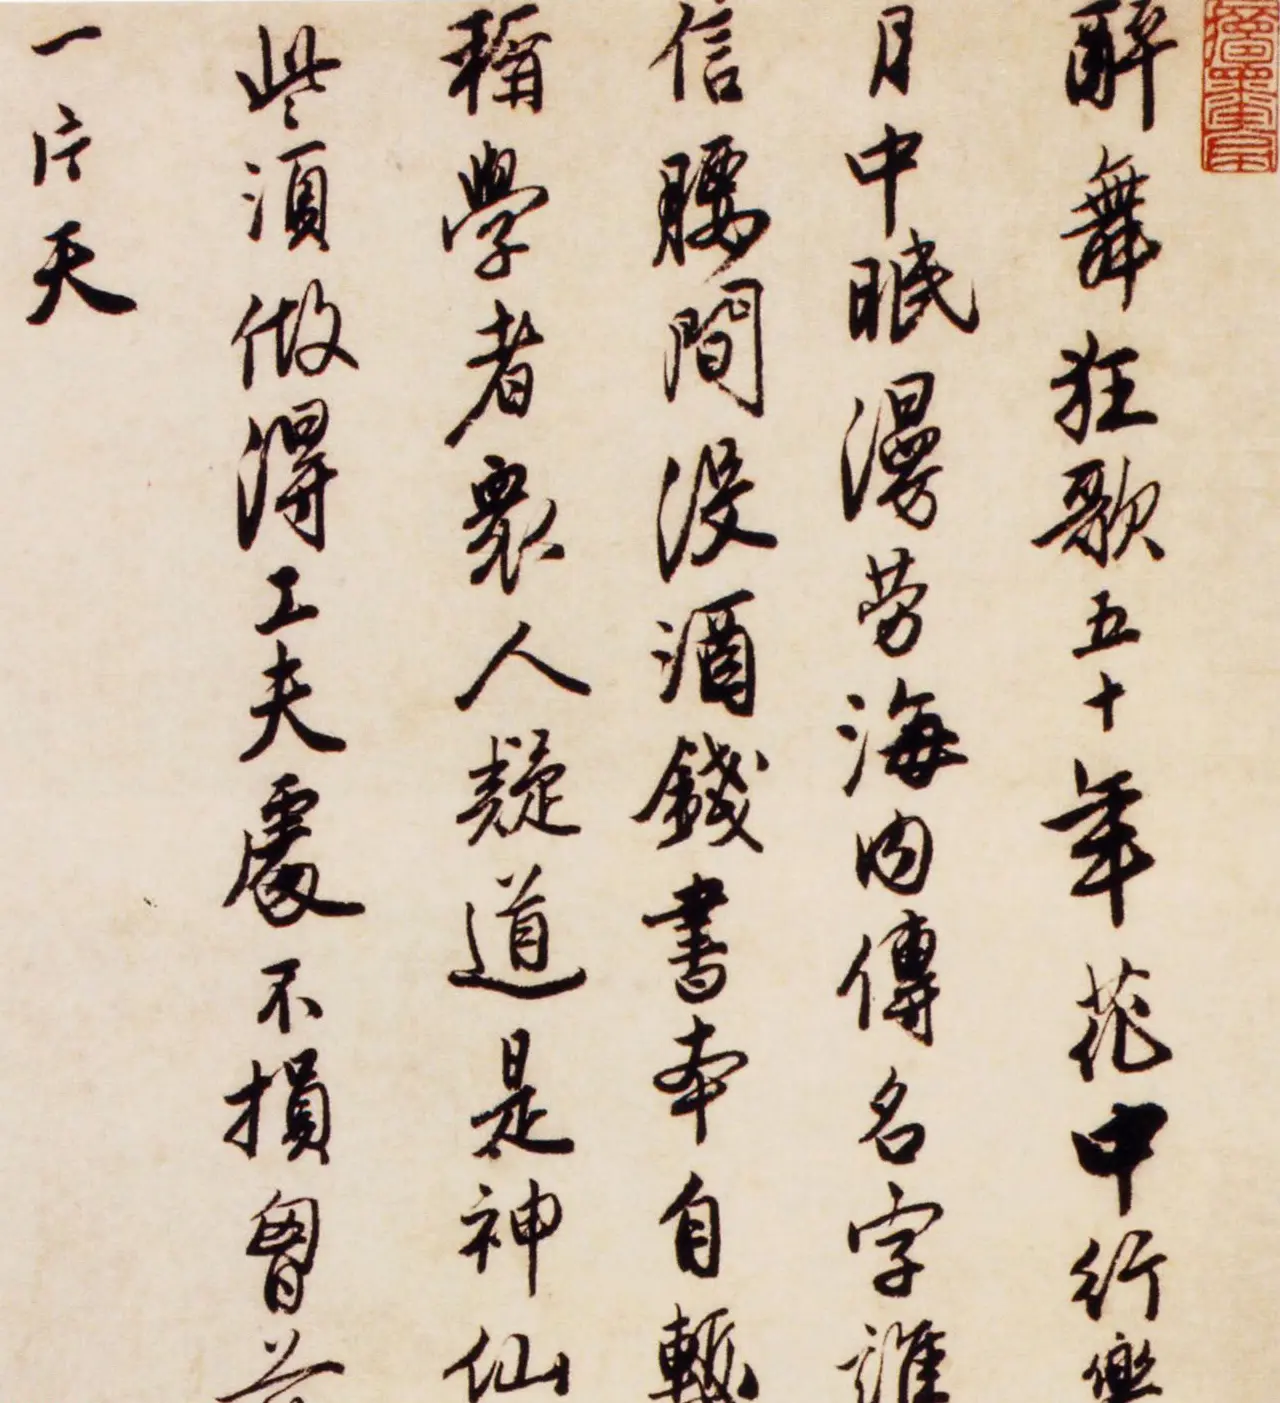 醉舞狂歌五十年花中行樂
月中眠漫勞海內傳名字誰
信腰間沒酒錢書本自慚
稱學者眾人疑道是神仙
些須做得工夫處不損胸前
一片天